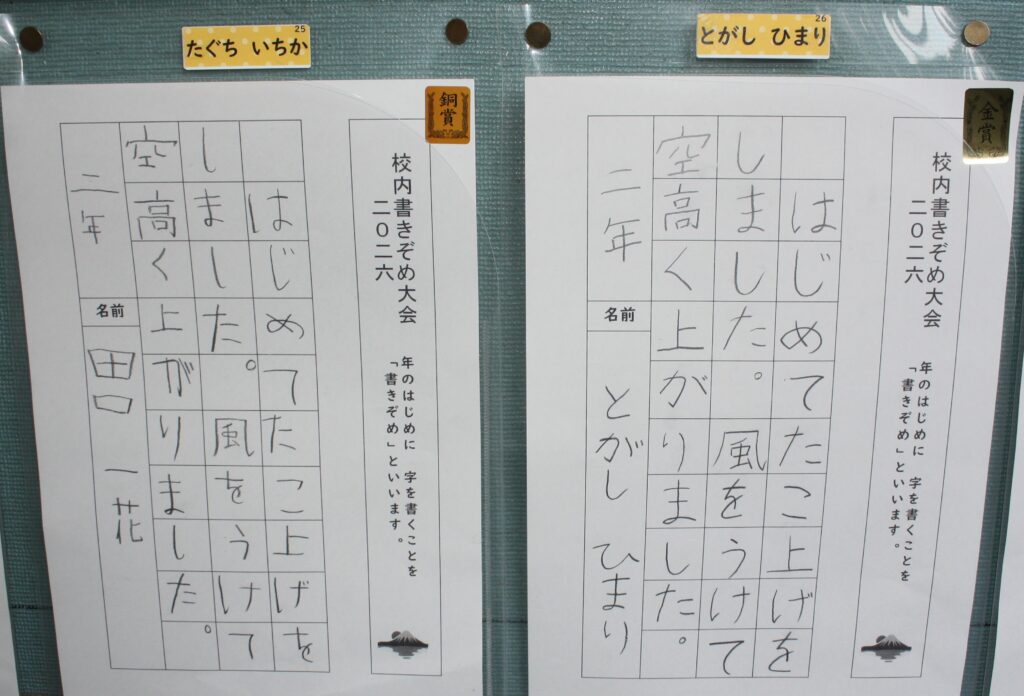 25
たぐち いちか
銅賞
校内書きぞめ大会
二〇二六
年のはじめに 字を書くことを
「書きぞめ」といいます。
はじめてたこ上げを
しました。風をうけて
空高く上がりました。
二年
名前
田口 一花
26
とがし ひまり
金賞
校内書きぞめ大会
二〇二六
年のはじめに 字を書くことを
「書きぞめ」といいます。
はじめてたこ上げを
しました。風をうけて
空高く上がりました。
二年
名前
とがし ひまり